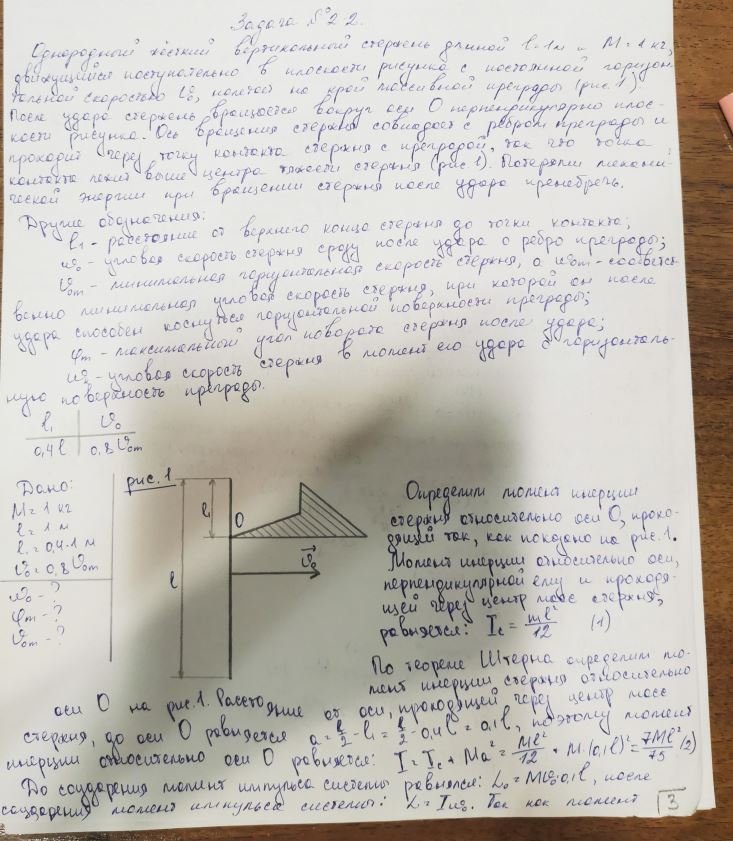 Задача №2.2.
Однородный жёсткий вертикальный стержень длиной l=1м и M=1кг,
движущийся поступательно в плоскости рисунка с постоянной горизон
тальной скоростью V₀, налетает на край массивной преграды (рис.1)
После удара стержень вращается вокруг оси О перпендикулярно плос-
кости рисунка. Ось вращения стержня совпадает с ребром преграды и
проходит через точку контакта стержня с преградой, так что точка
контакта лежит выше центра тяжести стержня (рис 1). Потерями механи-
ческой энергии при вращении стержня после удара пренебречь.
Другие обозначения:
l₁ - расстояние от верхнего конца стержня до точки контакта;
ω₀ - угловая скорость стержня сразу после удара о ребро преграды;
V₀m - минимальная горизонтальная скорость стержня, а ω₀m - соответст
венно минимальная угловая скорость стержня, при которой он после
удара способен коснуться горизонтальной поверхности преграды;
φm - максимальный угол поворота стержня после удара;
угловая скорость стержня в момент его удара о горизонталь-
ную поверхность преграды.
l₁ V₀
0,4l 0,8V₀m
Дано:
M=1 кг
l=1 м
l₁=0,4·1 м
V₀=0,8V₀m
ω₀ - ?
φm - ?
V₀m - ?
рис.1
l₁
O
V₀
l
Определим момент инерции
стержня относительно оси О, прохо-
дящей так, как показано на рис.1.
Момент инерции относительно оси,
перпендикулярной ему и проходя-
щей через центр масс стержня,
равняется: I_c = ml²/12 (1)
По теореме Штерна определим мо-
мент инерции стержня относительно
оси О на рис.1. Расстояние от оси, проходящей через центр масс
стержня, до оси О равняется a = l/2 - l₁ = l/2 - 0,4l = 0,1l, поэтому момент
инерции относительно оси О равняется: I = I_c + Ma² = Ml²/12 + M·(0,1l)² = 7Ml²/75 (2)
До соударения момент импульса системы равнялся: L₀ = MV₀·0,1l, после
соударения момент импульса системы: L = Iω₀. Так как момент
3